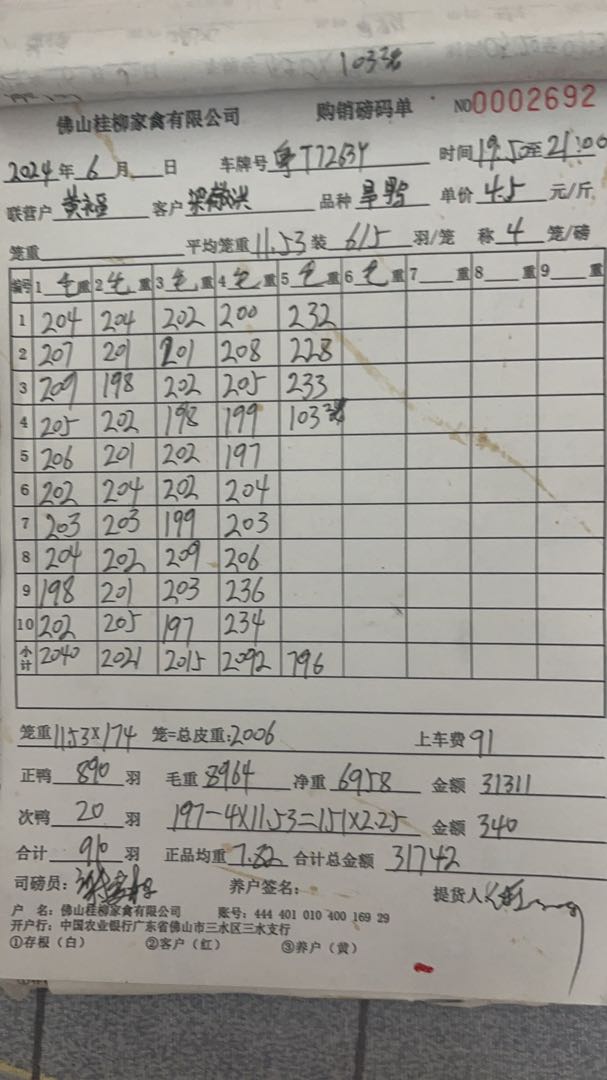 103
佛山桂柳家禽有限公司 购销磅码单 NO0002692
2024年6月 日 车牌号 粤T7263Y 时间19:50至21:00
联营户 黄 客户 梁 洪 品种 单价4.5元/斤
笼重 平均笼重11.53装6/5羽/笼 称4笼/磅
编号 1毛重 2毛重 3毛重 4毛重 5毛重 6毛重 7 重 8 重 9 重
1 204 204 202 200 232
2 207 201 201 208 228
3 209 198 202 205 233
4 205 202 198 199 103
5 206 201 202 197
6 202 204 202 204
7 203 203 199 203
8 204 202 209 206
9 198 201 203 236
10 202 205 197 234
小计 2040 2021 2015 2092 796
笼重11.53×174 笼=总皮重:2006 上车费91
正鸭890羽 毛重8964 净重6958 金额31311
次鸭20羽 197-4×11.53=151×2.25 金额340
合计910羽 正品均重7.82 合计总金额31742
司磅员: 养户签名: 提货人
户 名:佛山桂柳家禽有限公司 账号:444 401 010 400 169 29
开户行:中国农业银行广东省佛山市三水区三水支行
①存根(白) ②客户(红) ③养户(黄)